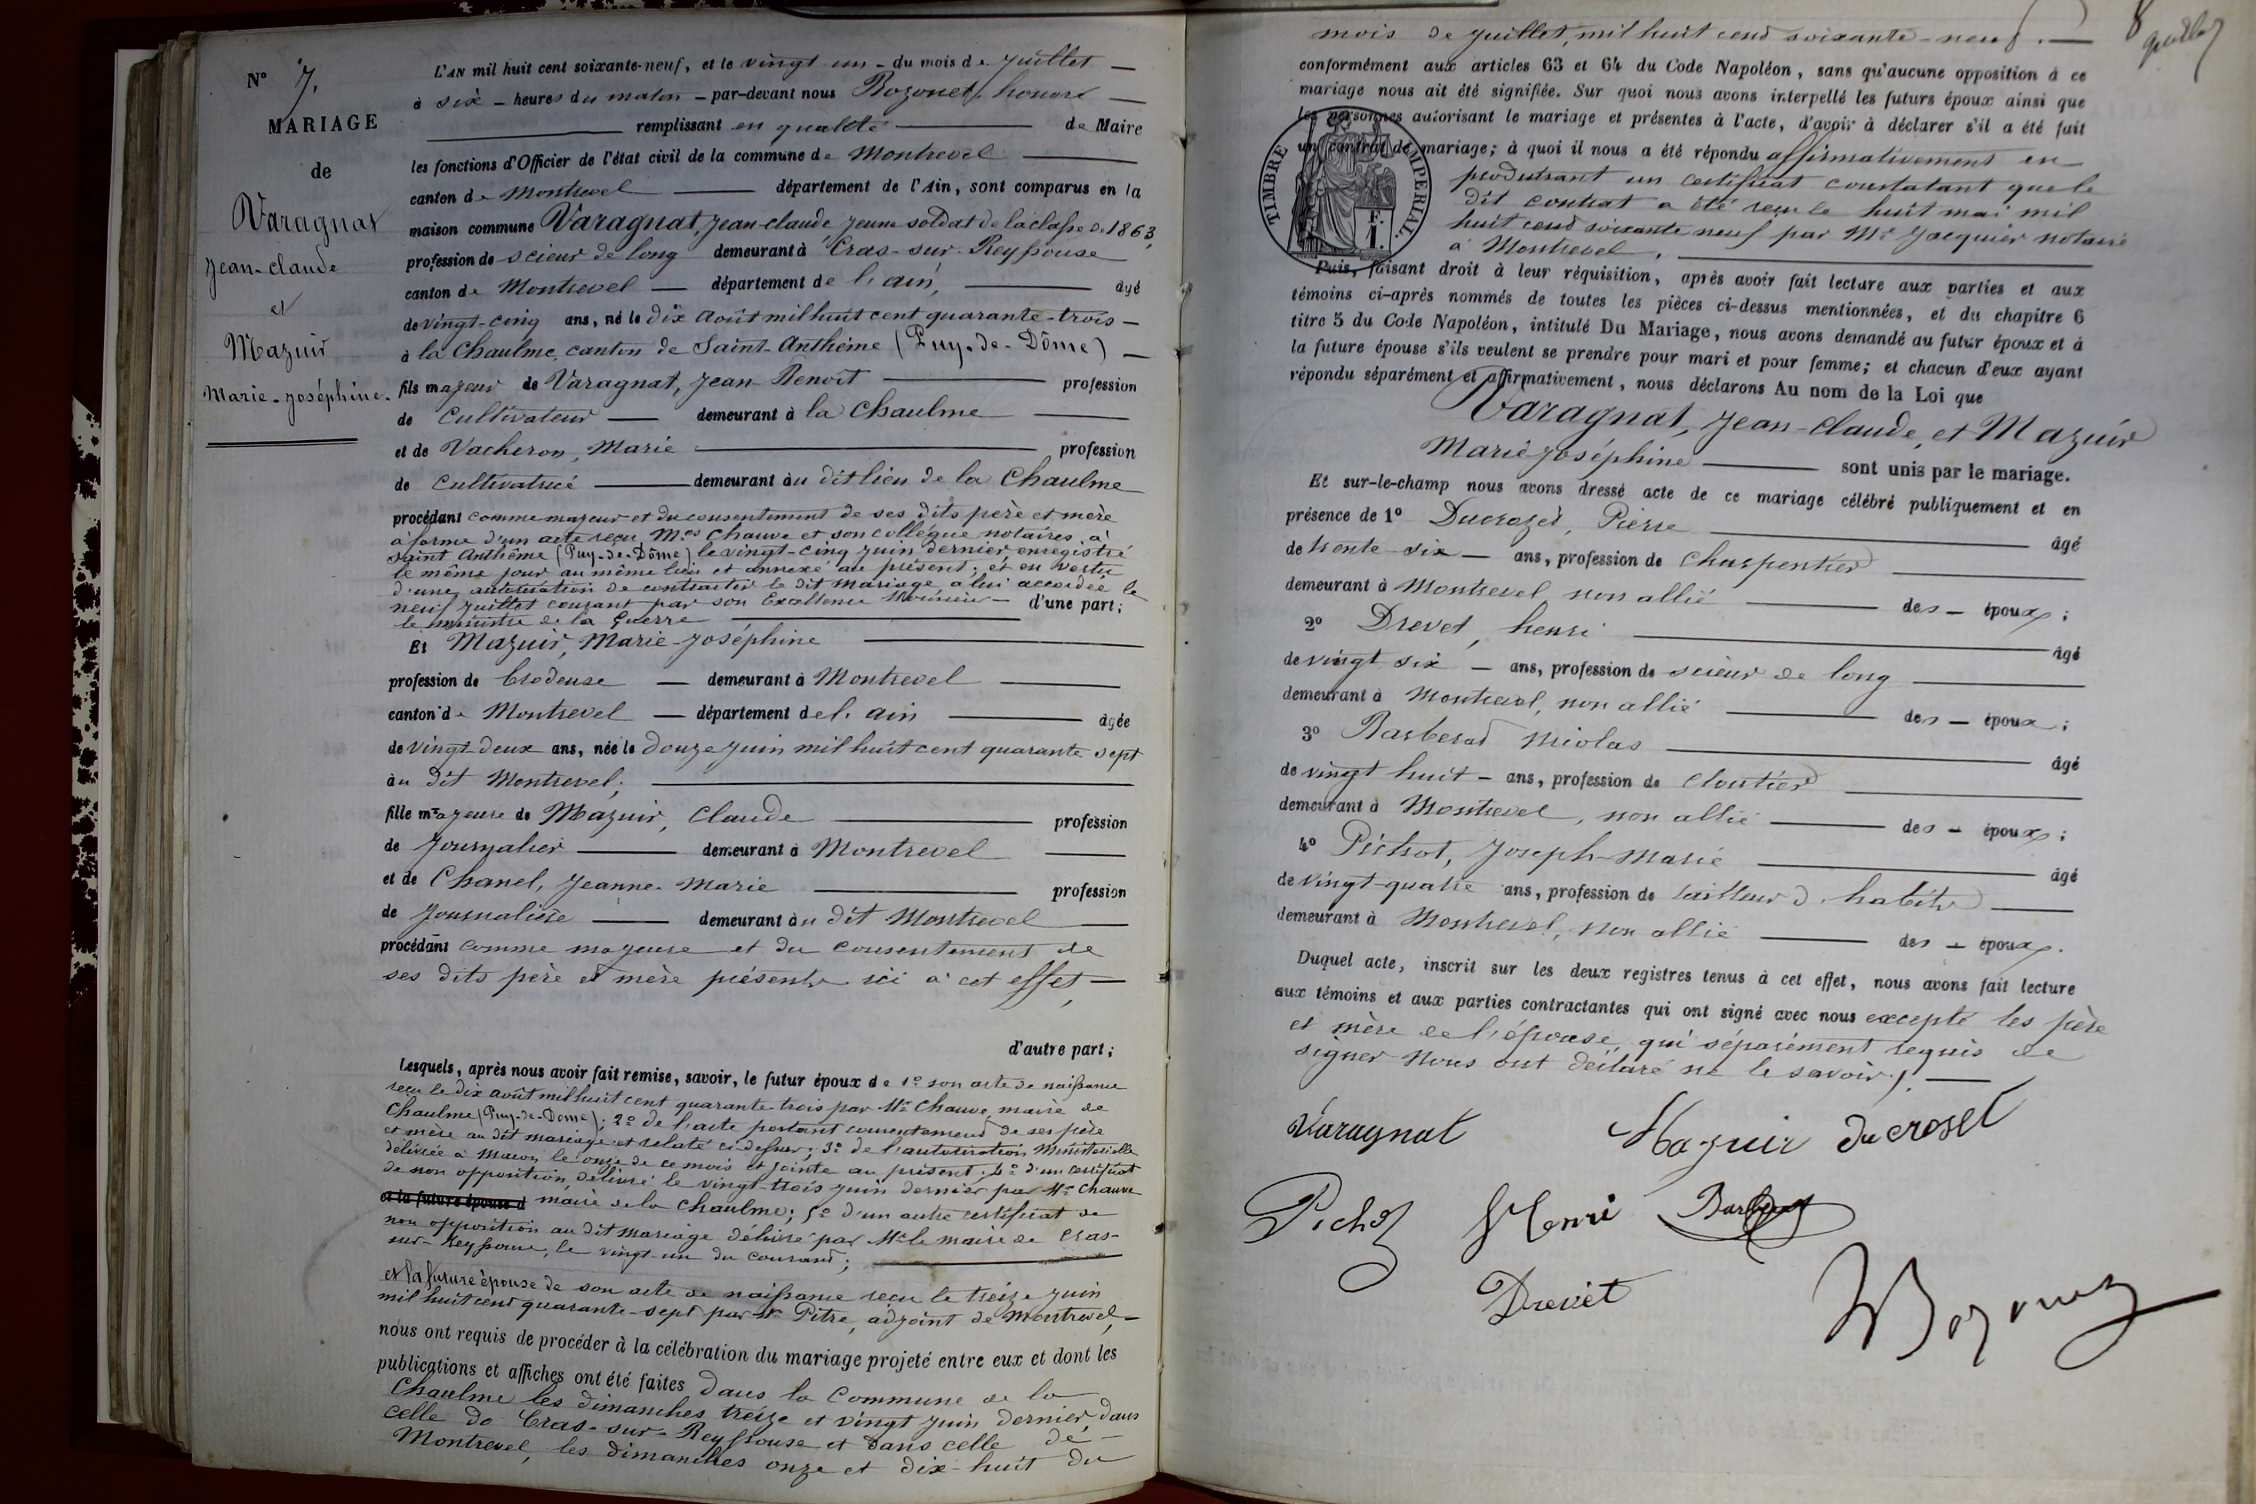 N° 7.
MARIAGE
de
Varagnat
Jean-Claude
et
Mazuir
Marie-Joséphine.
L'AN mil huit cent soixante-neuf, et le vingt un - du mois de juillet
à six - heures du matin - par-devant nous Bozonet, honoré
remplissant en qualité de Maire
les fonctions d'Officier de l'état civil de la commune de Montrevel
canton de Montrevel département de l'Ain, sont comparus en la
maison commune Varagnat, Jean-Claude, jeune soldat de la classe de 1863,
profession de scieur de long demeurant à Cras-sur-Reyssouse
canton de Montrevel département de l'ain, âgé
de vingt-cinq ans, né le dix août mil huit cent quarante-trois
à la Chaulme, canton de Saint-Anthème (Puy-de-Dôme)
fils majeur de Varagnat, Jean-Benoit profession
de Cultivateur demeurant à la Chaulme
et de Vacheron, Marie profession
de Cultivatrice demeurant au dit lieu de la Chaulme
procédant comme majeur et du consentement de ses dits père et mère
à forme d'un acte reçu Mes Chauve et son collègue notaires à
Saint Anthème (Puy-de-Dôme) le vingt-cinq juin dernier enregistré
le même jour au même lieu et annexé au présent; et en vertu
d'une autorisation de contracter le dit mariage a lui accordée le
neuf juillet courant par son Excellence Monsieur d'une part;
le ministre de la Guerre
Et Mazuir, Marie-Joséphine
profession de brodeuse demeurant à Montrevel
canton de Montrevel département de l'ain âgée
de vingt-deux ans, née le douze juin mil huit cent quarante sept
au dit Montrevel;
fille majeure de Mazuir, Claude profession
de Journalier demeurant à Montrevel
et de Chanel, Jeanne-Marie profession
de Journalière demeurant au dit Montrevel
procédant comme majeure et du consentement de
ses dits père et mère présents ici à cet effet,
d'autre part;
Lesquels, après nous avoir fait remise, savoir, le futur époux de 1° son acte de naissance
reçu le dix août mil huit cent quarante trois par Mr Chauve, maire de
Chaulme (Puy-de-Dôme); 2° de l'acte portant consentement de ses père
et mère au dit mariage et relaté ci-dessus; 3° de l'autorisation Ministerielle
délivrée à Macon le onze de ce mois et jointe au présent; 4° d'un certificat
de non opposition, délivré le vingt-trois juin dernier par Mr Chauve
et la future épouse d maire de la Chaulme; 5° d'un autre certificat de
non opposition au dit mariage délivré par Mr le maire de Cras-
sur-Reyssouse, le vingt-un du courant;
et la future épouse de son acte de naissance reçu le treize juin
mil huit cent quarante-sept par Mr Pitre, adjoint de Montrevel,
nous ont requis de procéder à la célébration du mariage projeté entre eux et dont les
publications et affiches ont été faites dans la Commune de la
Chaulme les dimanches treize et vingt juin dernier, dans
celle de Cras-sur-Reyssouse et dans celle de
Montrevel, les dimanches onze et dix-huit du
8
mois de juillet, mil huit cent soixante-neuf.
conformément aux articles 63 et 64 du Code Napoléon, sans qu'aucune opposition à ce
mariage nous ait été signifiée. Sur quoi nous avons interpellé les futurs époux ainsi que
les personnes autorisant le mariage et présentes à l'acte, d'avoir à déclarer s'il a été fait
un contrat de mariage; à quoi il nous a été répondu affirmativement en
produisant un certificat constatant que le
dit contrat a été reçu le huit mai mil
huit cent soixante neuf par Me Jacquier notaire
à Montrevel.
TIMBRE IMPERIAL.
Puis, faisant droit à leur réquisition, après avoir fait lecture aux parties et aux
témoins ci-après nommés de toutes les pièces ci-dessus mentionnées, et du chapitre 6
titre 5 du Code Napoléon, intitulé Du Mariage, nous avons demandé au futur époux et à
la future épouse s'ils veulent se prendre pour mari et pour femme; et chacun d'eux ayant
répondu séparément et affirmativement, nous déclarons Au nom de la Loi que
Varagnat, Jean-Claude, et Mazuir
Marie Joséphine sont unis par le mariage.
Et sur-le-champ nous avons dressé acte de ce mariage célébré publiquement et en
présence de 1° Ducrozet, Pierre âgé
de trente-six ans, profession de Charpentier
demeurant à Montrevel non allié des époux;
2° Drevet, henri âgé
de vingt six ans, profession de scieur de long
demeurant à Montrevel, non allié des époux;
3° Barberat Nicolas âgé
de vingt huit ans, profession de Cloutier
demeurant à Montrevel, non allié des époux;
4° Pichot, Joseph-Marie âgé
de vingt-quatre ans, profession de tailleur d'habits
demeurant à Montrevel, non allié des époux.
Duquel acte, inscrit sur les deux registres tenus à cet effet, nous avons fait lecture
aux témoins et aux parties contractantes qui ont signé avec nous excepté les père
et mère de l'épouse, qui séparément requis de
signer nous ont déclaré ne le savoir.
Varagnat Mazuir ducroset
Pichot Henri
Drevet Bozonet